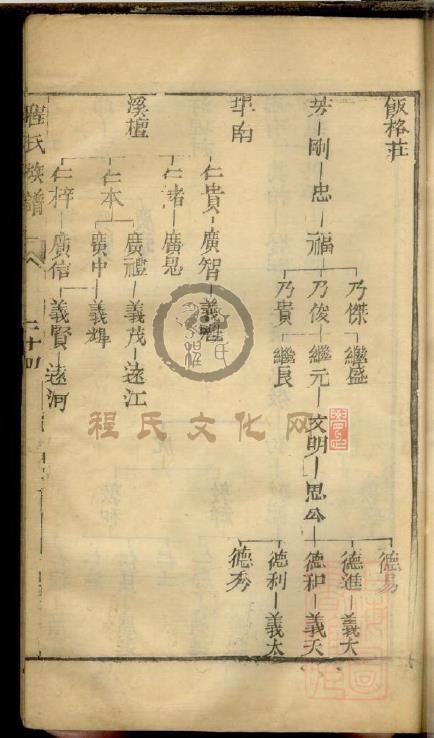 飯格莊
芳 剛 忠 福
乃傑 繼盛
乃俊 繼元 文明 思公
乃貴 繼良
德易
德進 義大
德和 義天
德利 義太
德秀
仁貴 廣智
廣恩
溪檀
仁本
廣禮 義茂 遠江
廣中
仁梓 廣信 義賢 遠河
程氏族譜
二十四
程氏文化网